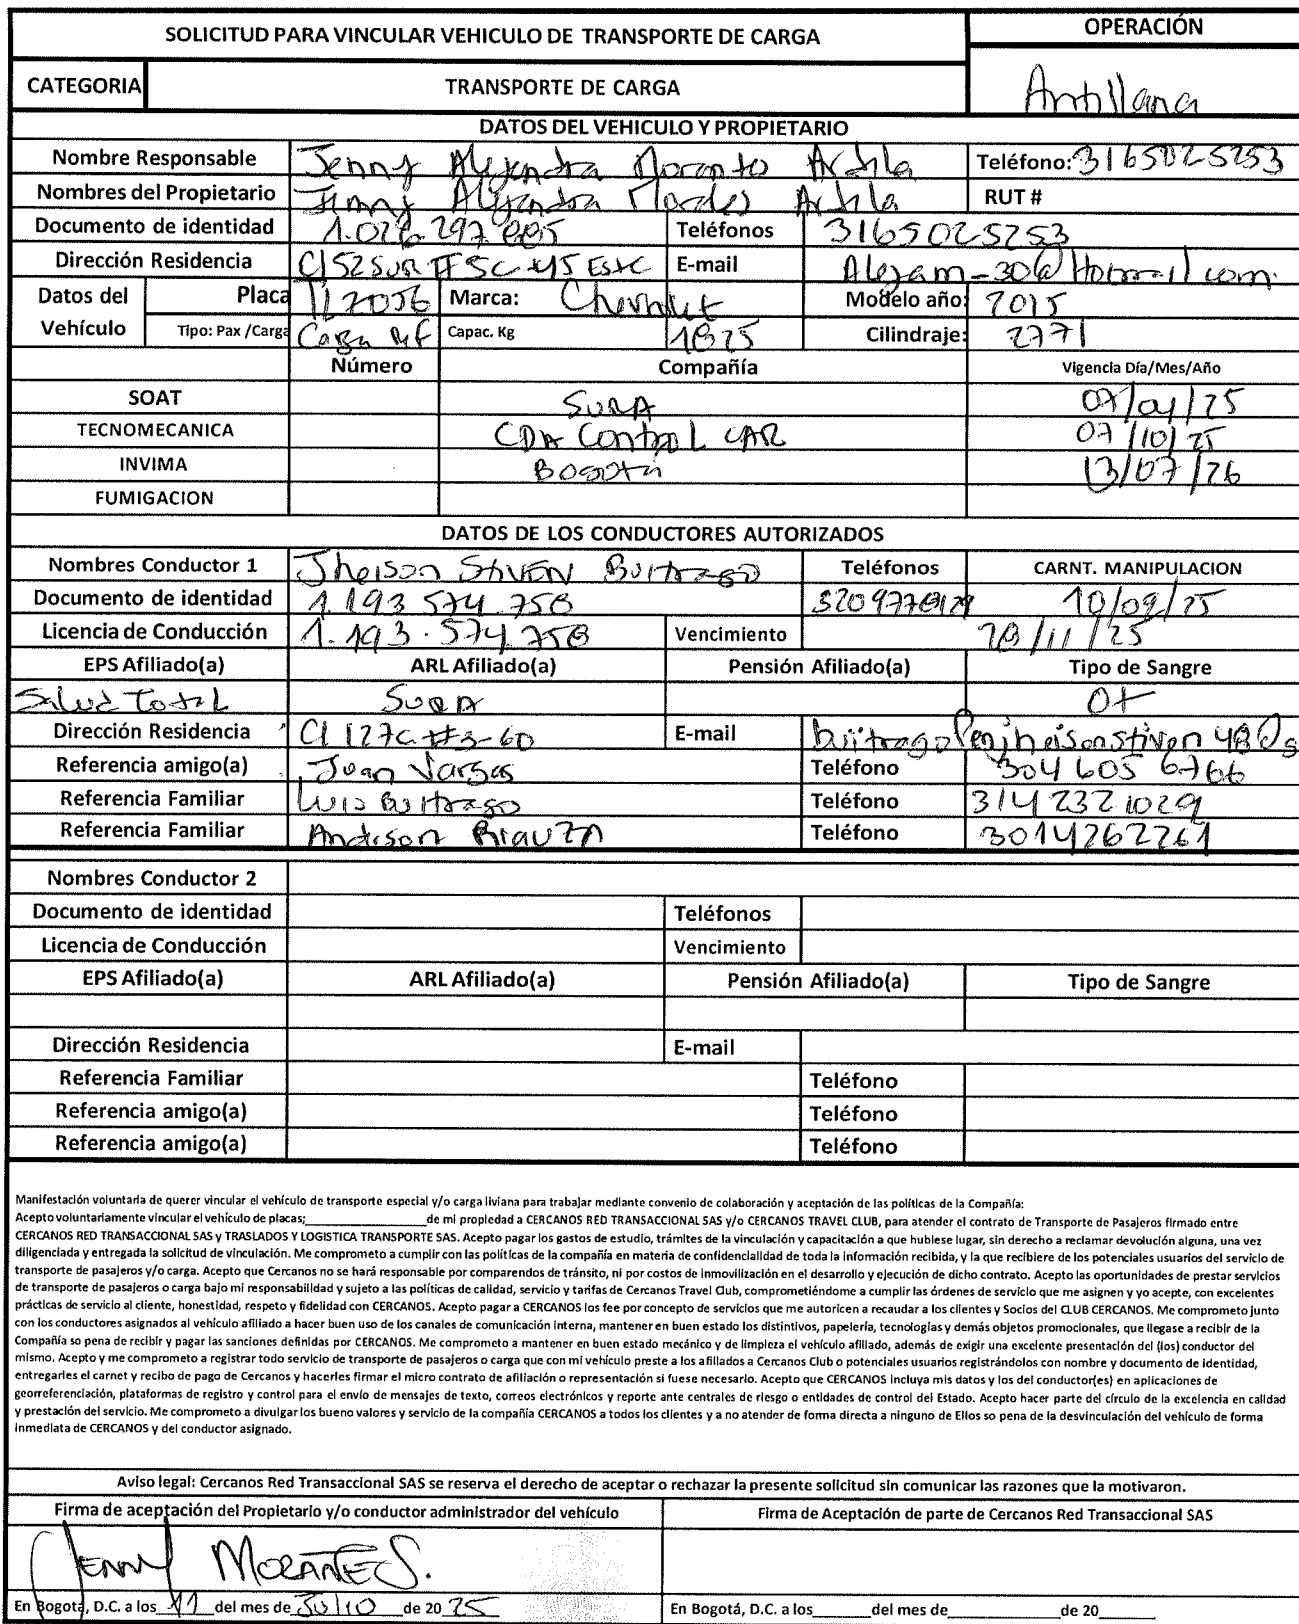 SOLICITUD PARA VINCULAR VEHICULO DE TRANSPORTE DE CARGA
OPERACIÓN
CATEGORIA TRANSPORTE DE CARGA
Antillana
DATOS DEL VEHICULO Y PROPIETARIO
Nombre Responsable Jenny Alejandra Ardila Teléfono: 3165025253
Nombres del Propietario Alejandra Ardila RUT #
Documento de identidad Teléfonos 3165025253
Dirección Residencia Cl 52 SUR # 5C-45 Este E-mail
Datos del Vehículo Placa Marca: Chevrolet Modelo año: 2015
Tipo: Pax /Carga Carga Capac. Kg 1825 Cilindraje: 2771
Número Compañía Vigencia Día/Mes/Año
SOAT SURA
TECNOMECANICA CDA Control CAR 07/10/25
INVIMA Bogotá 13/07/26
FUMIGACION
DATOS DE LOS CONDUCTORES AUTORIZADOS
Nombres Conductor 1 Jheison Stiven Buitrago Teléfonos CARNT. MANIPULACION
Documento de identidad 1.193.574.758 10/09/25
Licencia de Conducción 1.193.574.758 Vencimiento 28/11/25
EPS Afiliado(a) ARL Afiliado(a) Pensión Afiliado(a) Tipo de Sangre
Salud Total SURA O+
Dirección Residencia Cl 127C #3-60 E-mail
Referencia amigo(a) Juan Vargas Teléfono 304 605 6766
Referencia Familiar Luis Buitrago Teléfono 3142321029
Referencia Familiar Anderson Teléfono 3014262261
Nombres Conductor 2
Documento de identidad Teléfonos
Licencia de Conducción Vencimiento
EPS Afiliado(a) ARL Afiliado(a) Pensión Afiliado(a) Tipo de Sangre
Dirección Residencia E-mail
Referencia Familiar Teléfono
Referencia amigo(a) Teléfono
Referencia amigo(a) Teléfono
Manifestación voluntaria de querer vincular el vehículo de transporte especial y/o carga liviana para trabajar mediante convenio de colaboración y aceptación de las políticas de la Compañía:
Acepto voluntariamente vincular el vehículo de placas;________________de mi propiedad a CERCANOS RED TRANSACCIONAL SAS y/o CERCANOS TRAVEL CLUB, para atender el contrato de Transporte de Pasajeros firmado entre
CERCANOS RED TRANSACCIONAL SAS y TRASLADOS Y LOGISTICA TRANSPORTE SAS. Acepto pagar los gastos de estudio, trámites de la vinculación y capacitación a que hubiese lugar, sin derecho a reclamar devolución alguna, una vez
diligenciada y entregada la solicitud de vinculación. Me comprometo a cumplir con las políticas de la compañía en materia de confidencialidad de toda la información recibida, y la que recibiere de los potenciales usuarios del servicio de
transporte de pasajeros y/o carga. Acepto que Cercanos no se hará responsable por comparendos de tránsito, ni por costos de inmovilización en el desarrollo y ejecución de dicho contrato. Acepto las oportunidades de prestar servicios
de transporte de pasajeros o carga bajo mi responsabilidad y sujeto a las políticas de calidad, servicio y tarifas de Cercanos Travel Club, comprometiéndome a cumplir las órdenes de servicio que me asignen y yo acepte, con excelentes
prácticas de servicio al cliente, honestidad, respeto y fidelidad con CERCANOS. Acepto pagar a CERCANOS los fee por concepto de servicios que me autoricen a recaudar a los clientes y Socios del CLUB CERCANOS. Me comprometo junto
con los conductores asignados al vehículo afiliado a hacer buen uso de los canales de comunicación interna, mantener en buen estado los distintivos, papelería, tecnologías y demás objetos promocionales, que llegase a recibir de la
Compañía so pena de recibir y pagar las sanciones definidas por CERCANOS. Me comprometo a mantener en buen estado mecánico y de limpieza el vehículo afiliado, además de exigir una excelente presentación del (los) conductor del
mismo. Acepto y me comprometo a registrar todo servicio de transporte de pasajeros o carga que con mi vehículo preste a los afiliados a Cercanos Club o potenciales usuarios registrándolos con nombre y documento de identidad,
entregarles el carnet y recibo de pago de Cercanos y hacerles firmar el micro contrato de afiliación o representación si fuese necesario. Acepto que CERCANOS incluya mis datos y los del conductor(es) en aplicaciones de
georreferenciación, plataformas de registro y control para el envío de mensajes de texto, correos electrónicos y reporte ante centrales de riesgo o entidades de control del Estado. Acepto hacer parte del círculo de la excelencia en calidad
y prestación del servicio. Me comprometo a divulgar los bueno valores y servicio de la compañía CERCANOS a todos los clientes y a no atender de forma directa a ninguno de Ellos so pena de la desvinculación del vehículo de forma
inmediata de CERCANOS y del conductor asignado.
Aviso legal: Cercanos Red Transaccional SAS se reserva el derecho de aceptar o rechazar la presente solicitud sin comunicar las razones que la motivaron.
Firma de aceptación del Propietario y/o conductor administrador del vehículo Firma de Aceptación de parte de Cercanos Red Transaccional SAS
JENNY MORANTE S.
En Bogotá, D.C. a los 11 del mes de Julio de 20 25 En Bogotá, D.C. a los______del mes de____________de 20______